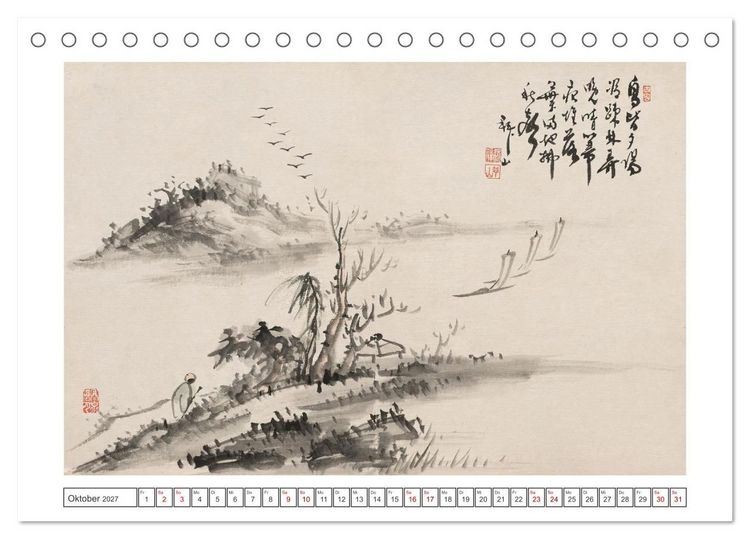 鳥背夕陽
疎林弄
晚晴
堆落
葉滿地
秋聲
山
Oktober 2027
Fr Sa So Mo Di Mi Do Fr Sa So Mo Di Mi Do Fr Sa So Mo Di Mi Do Fr Sa So Mo Di Mi Do Fr Sa So
1 2 3 4 5 6 7 8 9 10 11 12 13 14 15 16 17 18 19 20 21 22 23 24 25 26 27 28 29 30 31